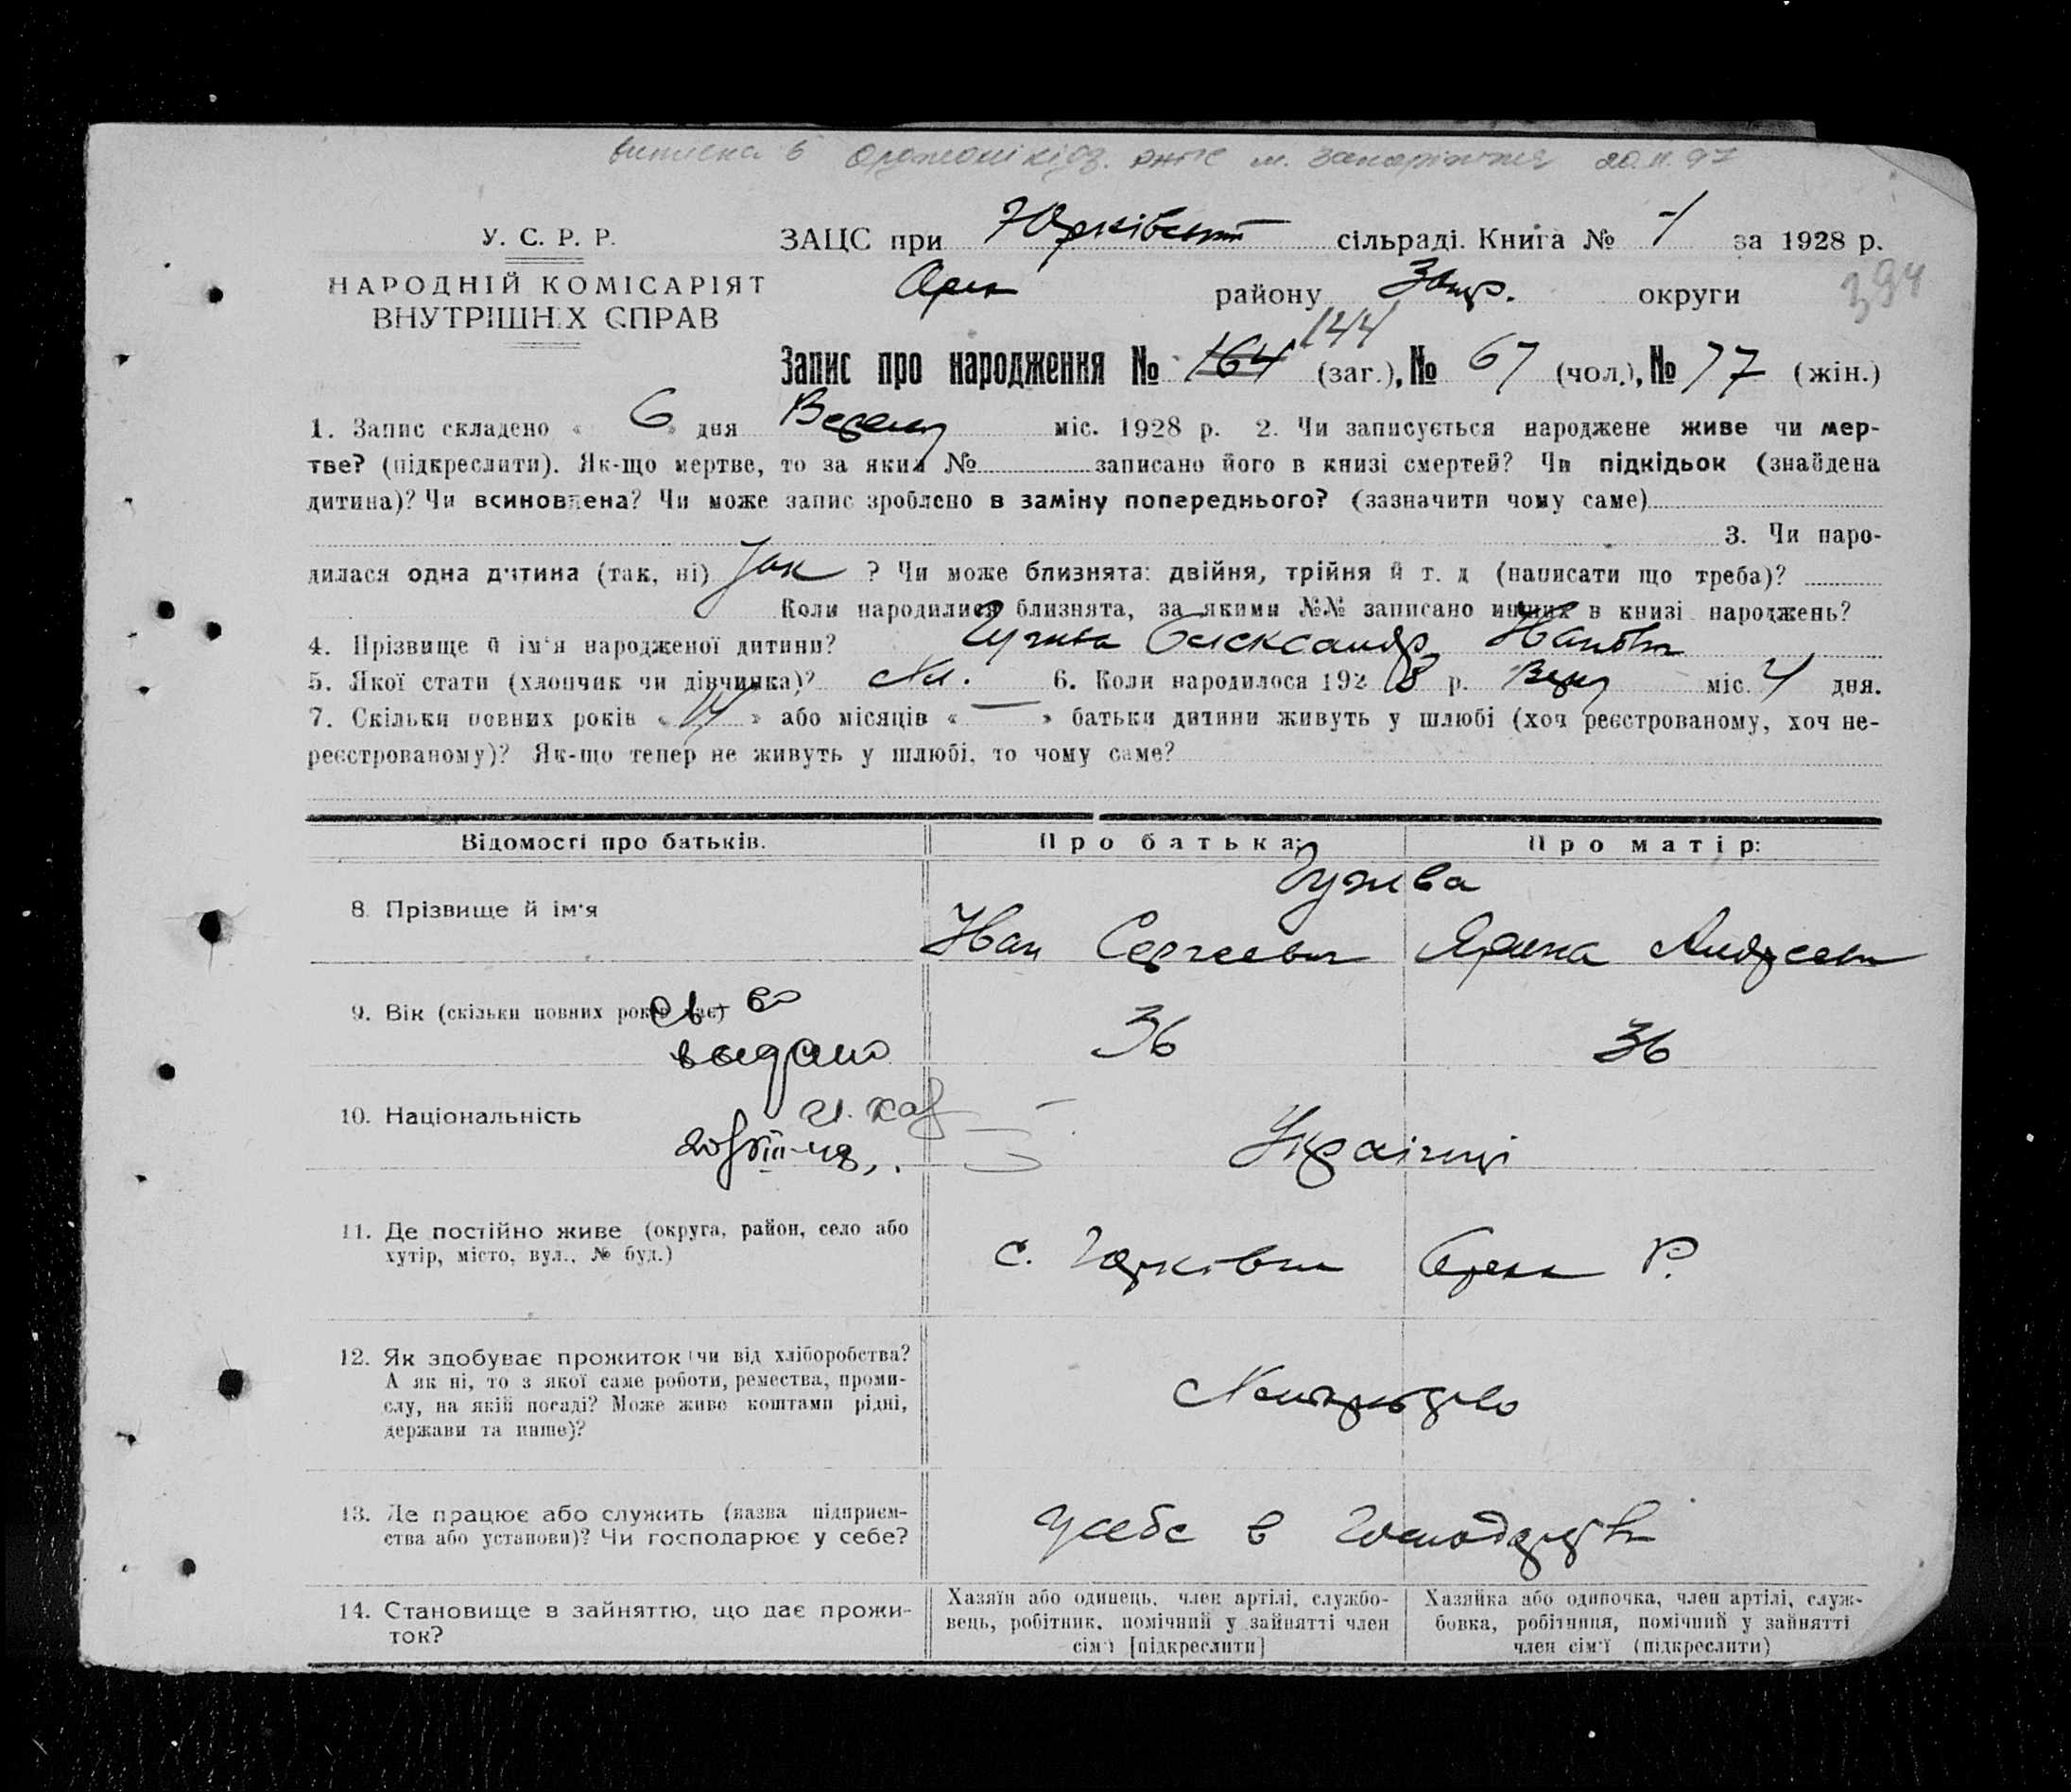 У. С. Р. Р.
НАРОДНІЙ КОМІСАРІЯТ
ВНУТРІШНІХ СПРАВ
ЗАЦС при Юрківськ сільраді. Книга № 1 за 1928 р.
Орех району Запор. округи
394
144
Запис про народження № 164 (заг.), № 67 (чол.), № 77 (жін.)
1. Запис складено « 6 » дня міс. 1928 р. 2. Чи записується народжене живе чи мер-
тве? (підкреслити). Як-що мертве, то за яким № записано його в книзі смертей? Чи підкідьок (знайдена
дитина)? Чи всиновлена? Чи може запис зроблено в заміну попереднього? (зазначити чому саме)
3. Чи наро-
дилася одна дитина (так, ні) Так ? Чи може близнята: двійня, трійня й т. д (написати що треба)?
Коли народилися близнята, за якими №№ записано инших в книзі народжень?
4. Прізвище й ім'я народженої дитини? Олександр Іванов
5. Якої стати (хлопчик чи дівчинка)? 6. Коли народилося 1928 р. міс. 4 дня.
7. Скільки повних років « » або місяців « — » батьки дитини живуть у шлюбі (хоч реєстрованому, хоч не-
реєстрованому)? Як-що тепер не живуть у шлюбі, то чому саме?
Відомості про батьків. Про батька: Про матір:
8. Прізвище й ім'я Гужва
Иван Сергеевич Ярина Андреевн
9. Вік (скільки повних років має) 36 36
св-во
выдано
10. Національність Українці
11. Де постійно живе (округа, район, село або
хутір, місто, вул., № буд.) с. Юрківка Орех Р.
12. Як здобуває прожиток (чи від хліборобства?
А як ні, то з якої саме роботи, ремества, проми-
слу, на якій посаді? Може живе коштами рідні,
держави та инше)?
13. Де працює або служить (назва підприєм-
ства або установи)? Чи господарює у себе? Усебе в
14. Становище в зайняттю, що дає прожи-
ток?
Хазяїн або одинець, член артілі, службо-
вець, робітник, помічний у зайнятті член
сім'ї [підкреслити]
Хазяйка або одиночка, член артілі, служ-
бовка, робітниця, помічний у зайнятті
член сім'ї (підкреслити)